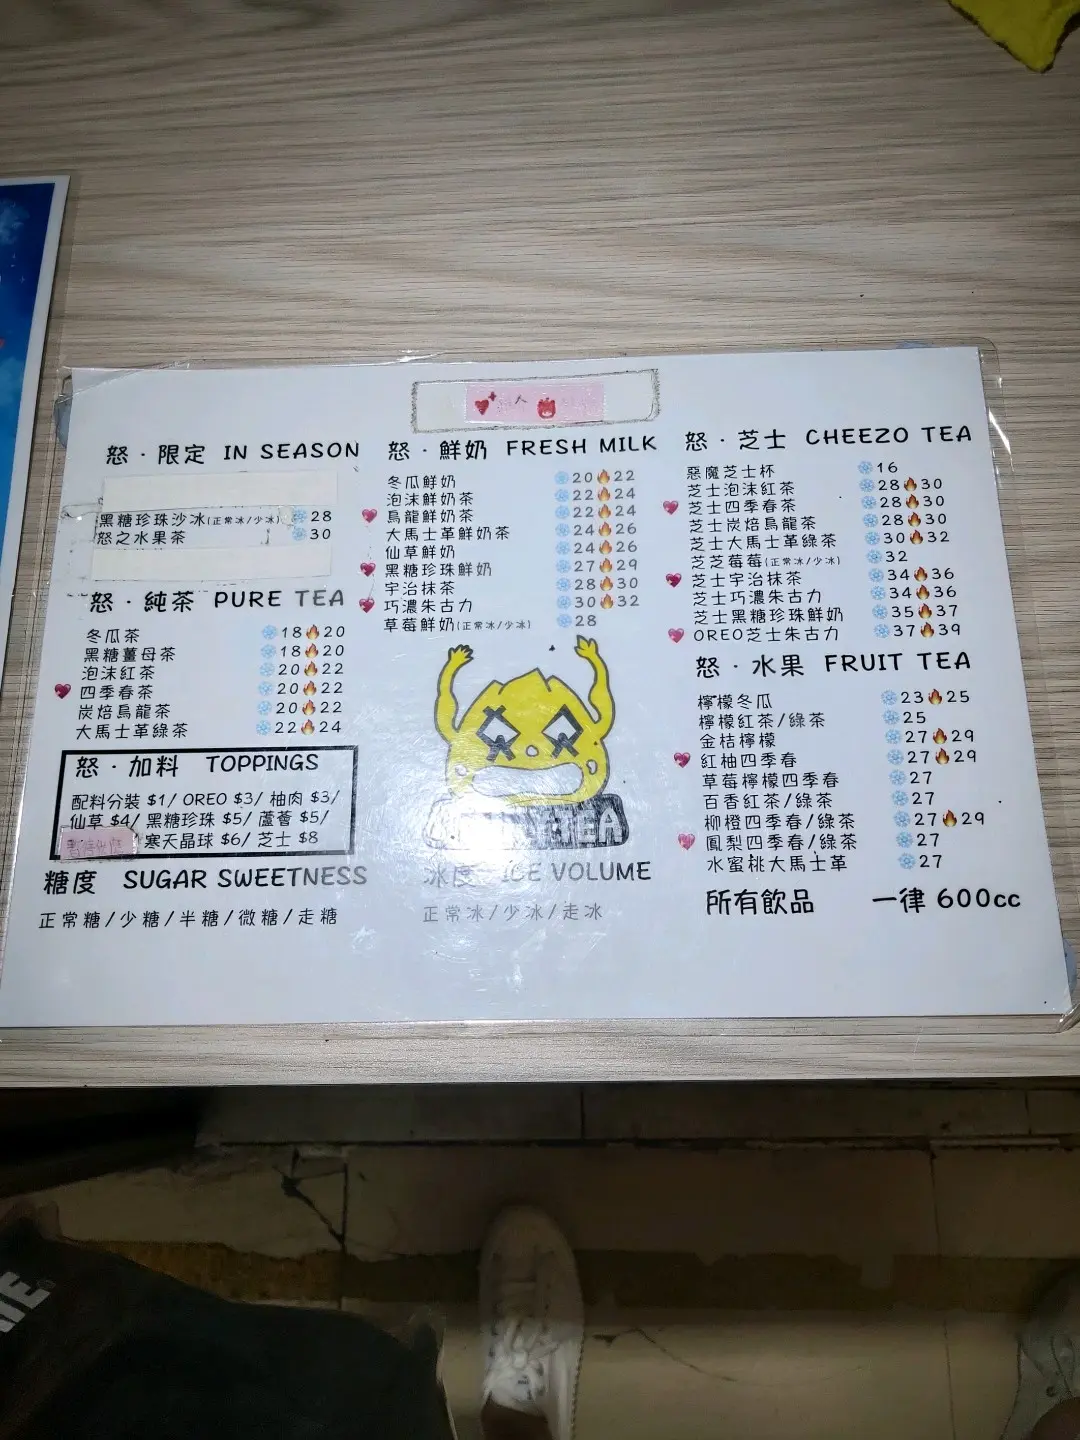 怒·限定 IN SEASON
黑糖珍珠沙冰(正常冰/少冰) 28
怒之水果茶 30
怒·純茶 PURE TEA
冬瓜茶 18 20
黑糖薑母茶 18 20
泡沫紅茶 20 22
四季春茶 20 22
炭焙烏龍茶 20 22
大馬士革綠茶 22 24
怒·加料 TOPPINGS
配料分裝 $1/ OREO $3/ 柚肉 $3/
仙草 $4/ 黑糖珍珠 $5/ 蘆薈 $5/
寒天晶球 $6/ 芝士 $8
糖度 SUGAR SWEETNESS
正常糖/少糖/半糖/微糖/走糖
怒·鮮奶 FRESH MILK
冬瓜鮮奶 20 22
泡沫鮮奶茶 22 24
烏龍鮮奶茶 22 24
大馬士革鮮奶茶 24 26
仙草鮮奶 24 26
黑糖珍珠鮮奶 27 29
宇治抹茶 28 30
巧濃朱古力 30 32
草莓鮮奶(正常冰/少冰) 28
TEA
冰度 ICE VOLUME
正常冰/少冰/走冰
怒·芝士 CHEEZO TEA
惡魔芝士杯 16
芝士泡沫紅茶 28 30
芝士四季春茶 28 30
芝士炭焙烏龍茶 28 30
芝士大馬士革綠茶 30 32
芝芝莓莓(正常冰/少冰) 32
芝士宇治抹茶 34 36
芝士巧濃朱古力 34 36
芝士黑糖珍珠鮮奶 35 37
OREO芝士朱古力 37 39
怒·水果 FRUIT TEA
檸檬冬瓜 23 25
檸檬紅茶/綠茶 25
金桔檸檬 27 29
紅柚四季春 27 29
草莓檸檬四季春 27
百香紅茶/綠茶 27
柳橙四季春/綠茶 27 29
鳳梨四季春/綠茶 27
水蜜桃大馬士革 27
所有飲品 一律 600cc